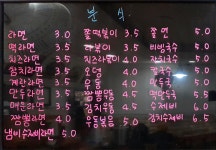 분식
라면 3.0
떡라면 3.5
치즈라면 3.5
김치라면 3.5
계란라면 3.5
만두라면 3.5
매운라면 3.5
짬뽕라면 4.0
냄비수제비라면 5.0
쫄떡볶이 3.5
라볶이 3.5
치즈라볶이 4.0
오뎅 4.0
우동 4.0
짬뽕우동 4.5
김치우동 4.5
우동볶음 5.0
쫄면 5.0
비빔국수 5.0
잔치국수 5.0
떡국 5.0
만두국 5.0
떡만두국 5.5
수제비 6.0
김치수제비 6.5